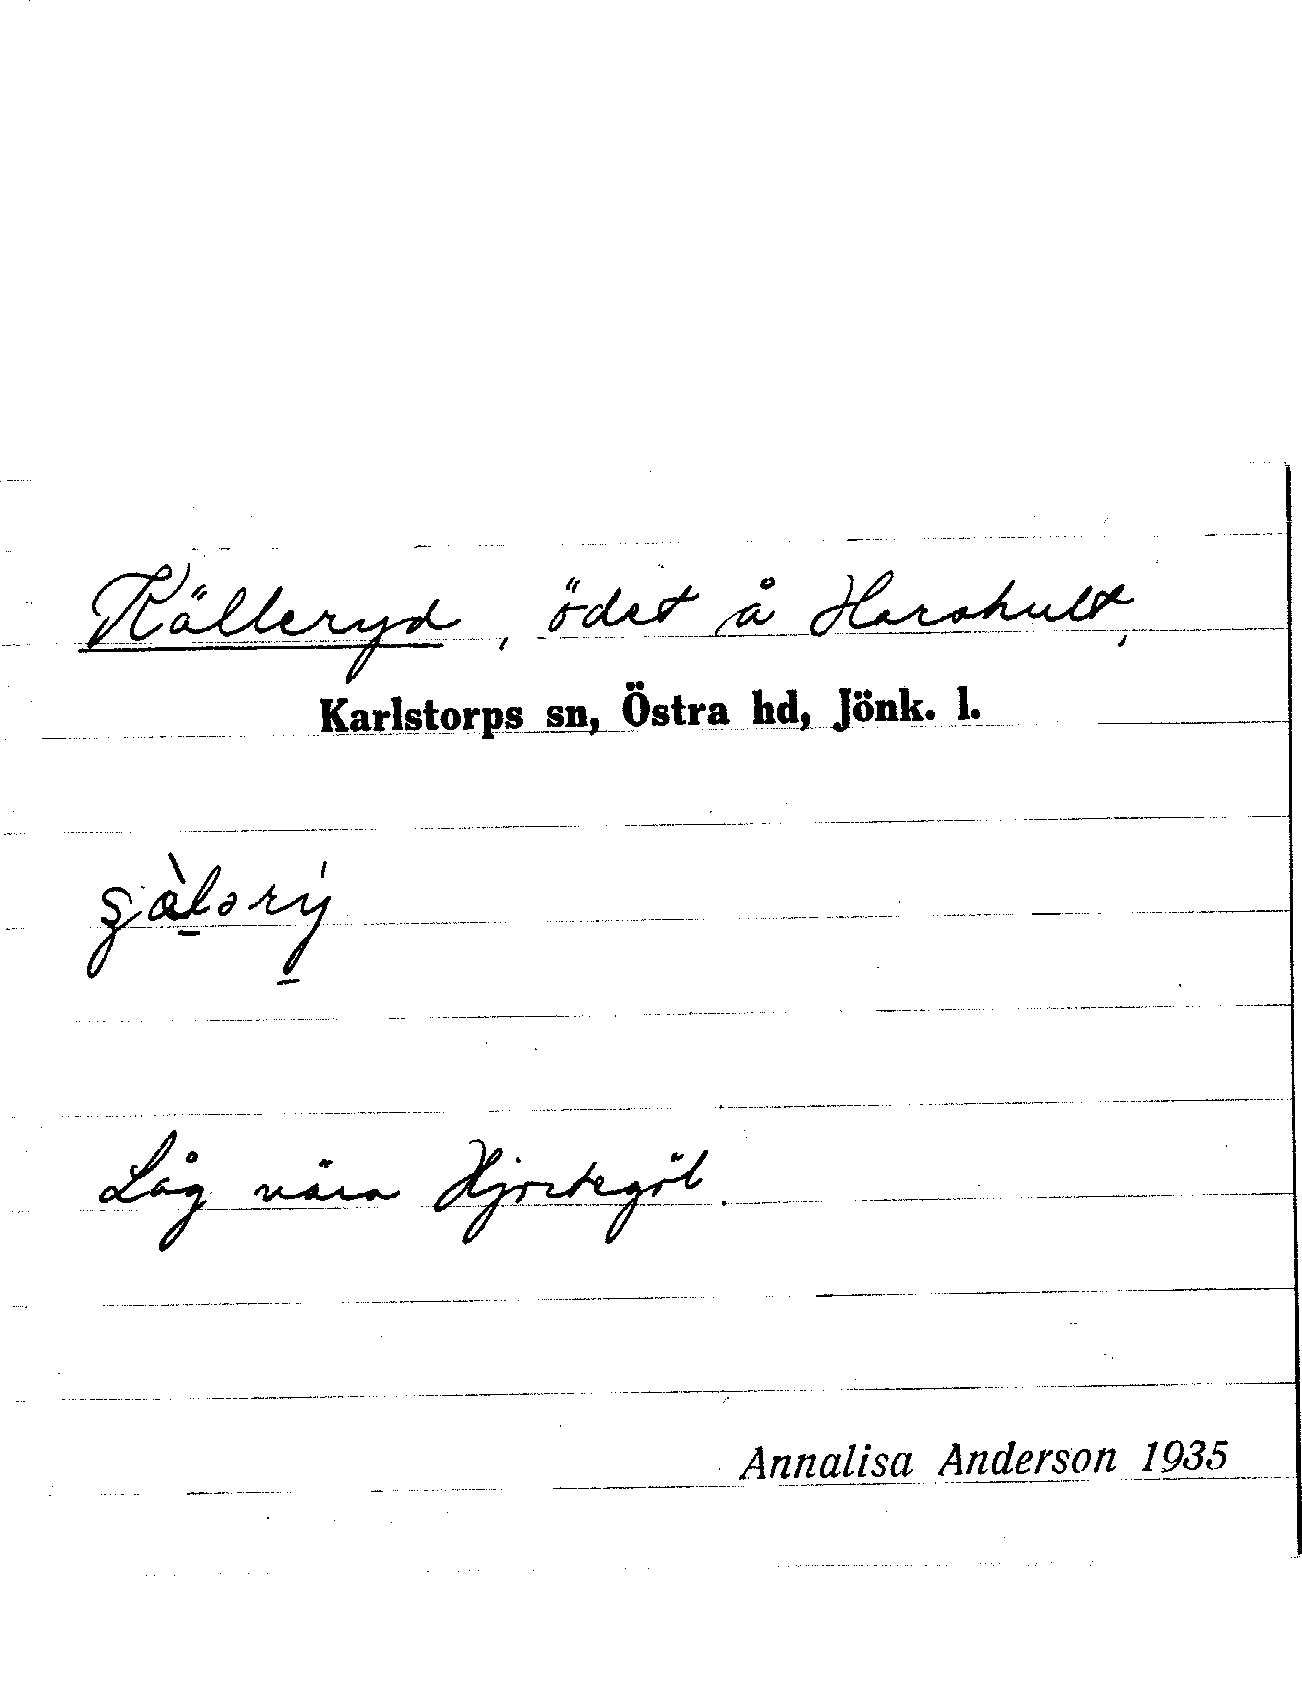 Källeryd, ödet å Harshult,
Karlstorps sn, Östra hd, Jönk. l.
Låg nära Hjortegöl.
Annalisa Anderson 1935